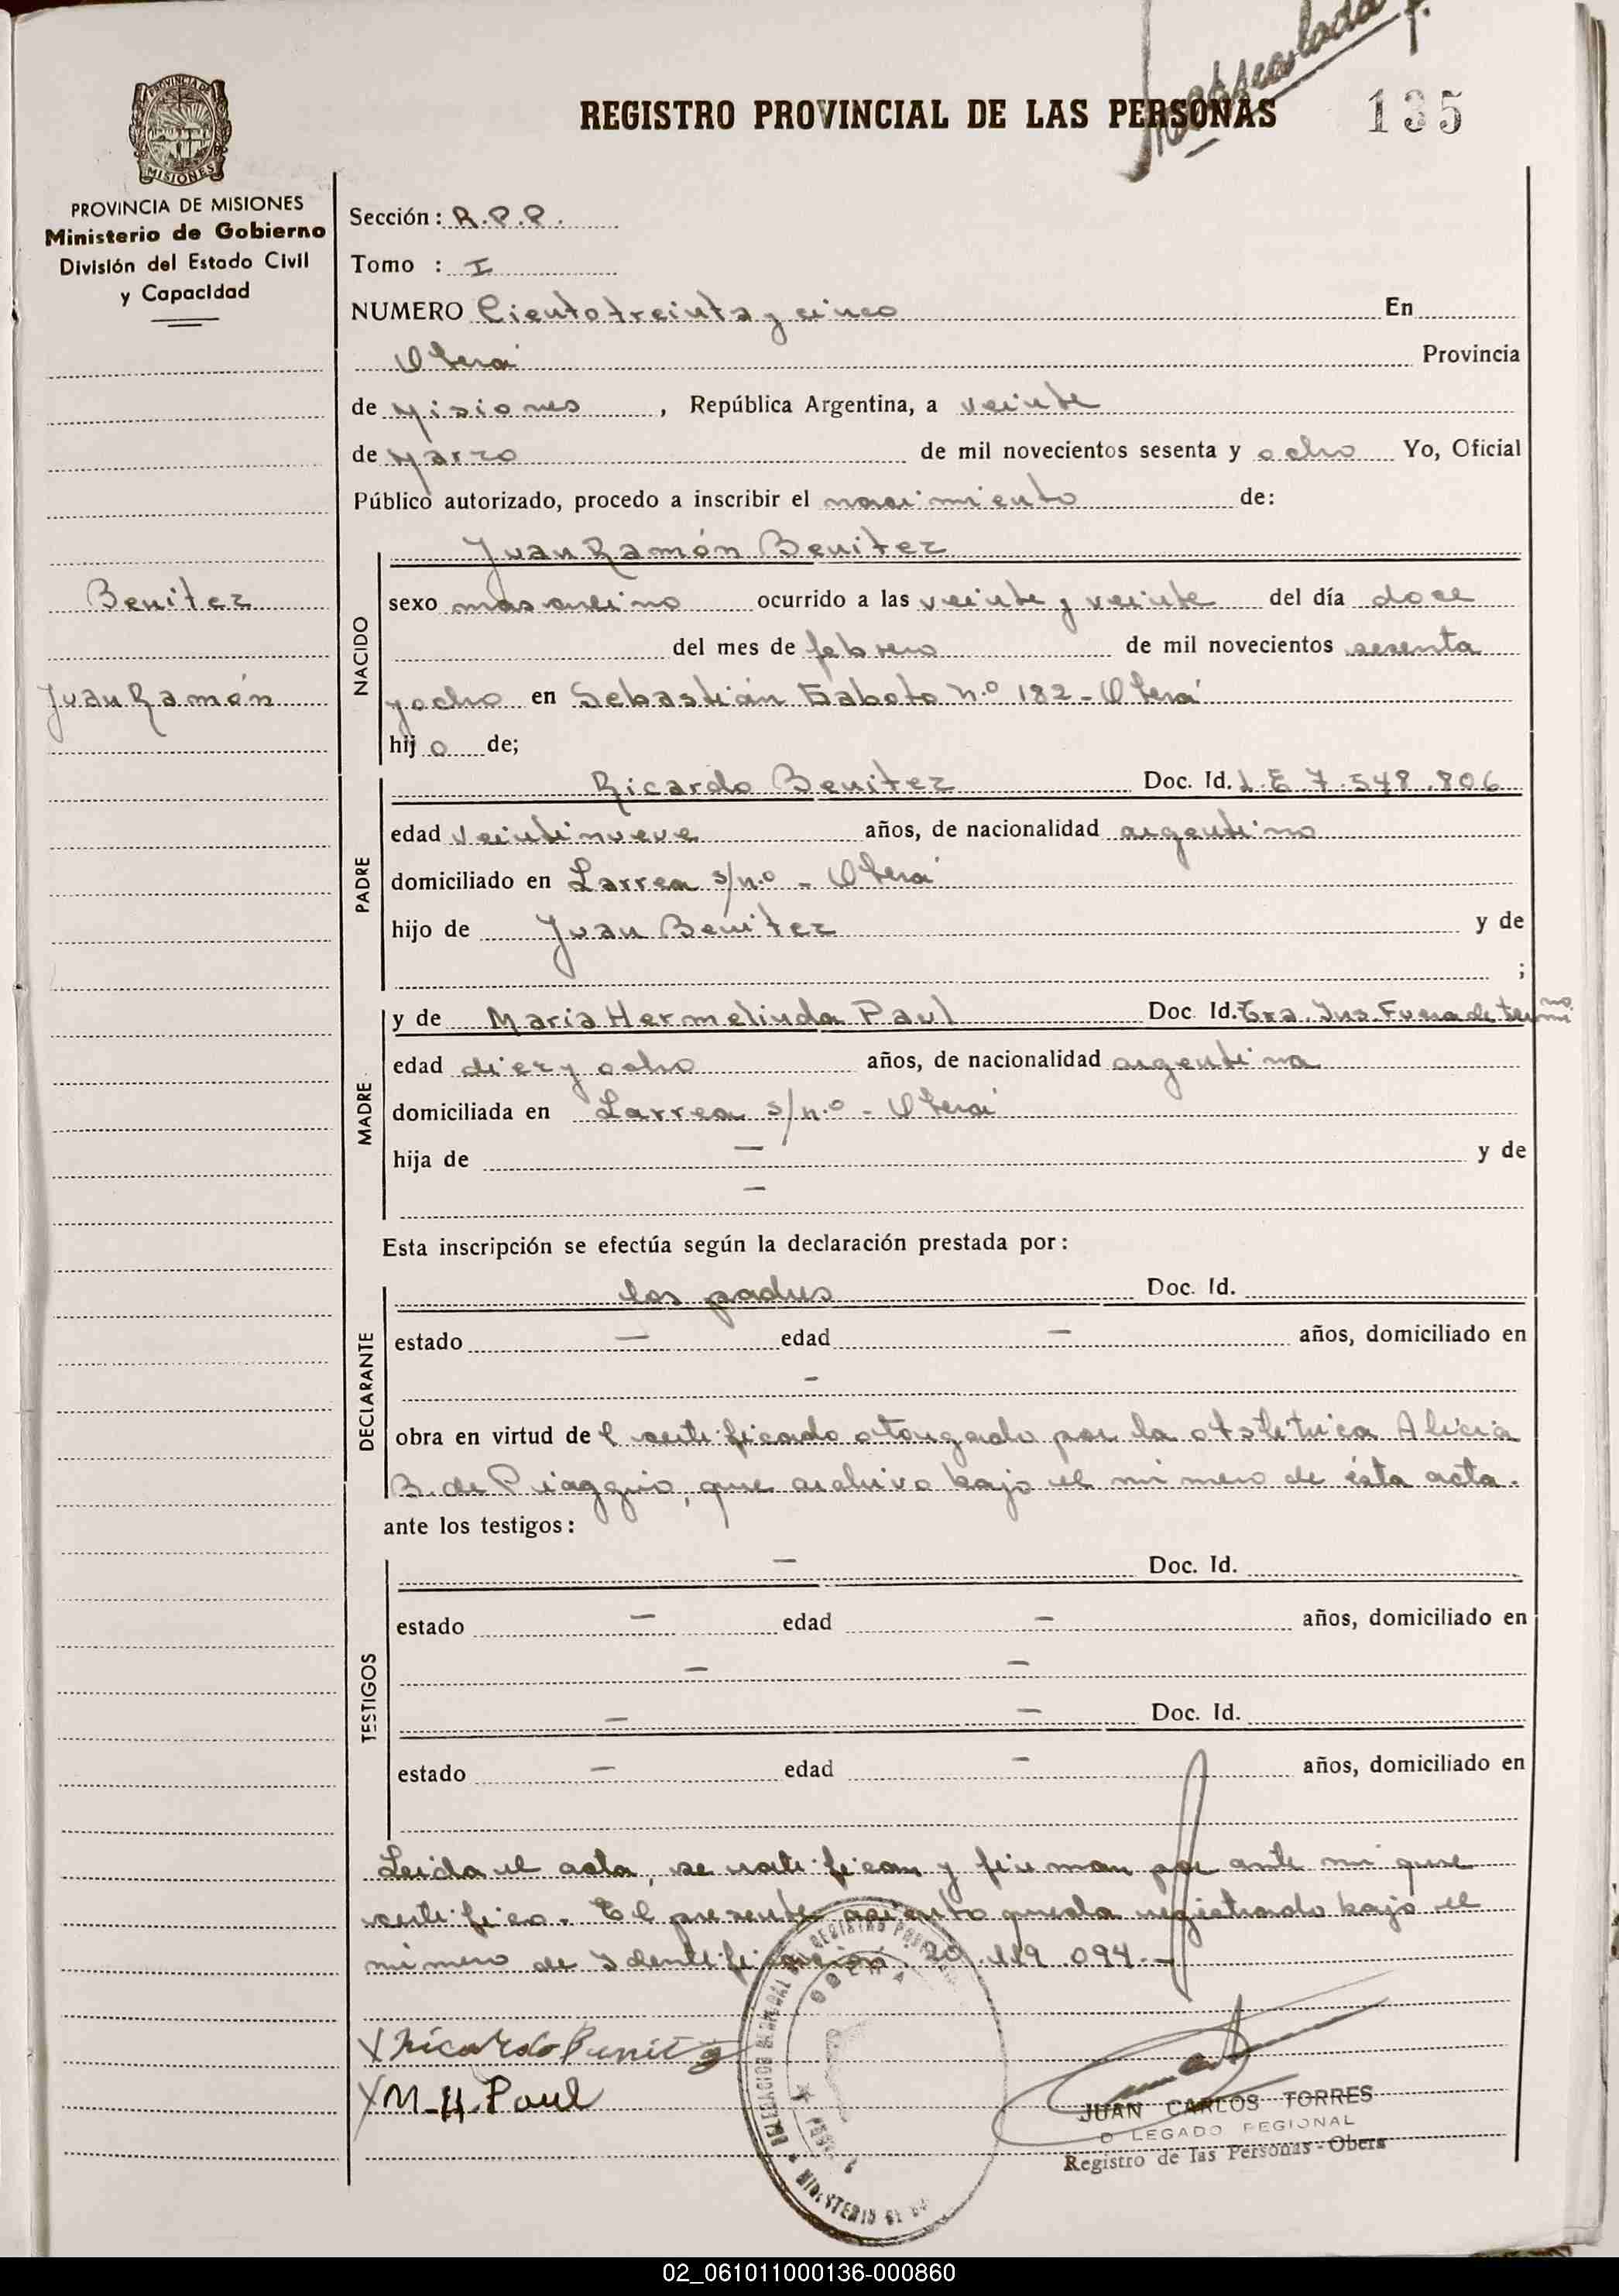 REGISTRO PROVINCIAL DE LAS PERSONAS 135
PROVINCIA DE
MISIONES
PROVINCIA DE MISIONES
Ministerio de Gobierno
División del Estado Civil
y Capacidad
Benitez
Juan Ramón
Sección: R.P.P.
Tomo : I
NUMERO Ciento treinta y cinco En
Oberá Provincia
de Misiones, República Argentina, a veinte
de Marzo de mil novecientos sesenta y ocho Yo, Oficial
Público autorizado, procedo a inscribir el nacimiento de:
NACIDO
Juan Ramón Benitez
sexo masculino ocurrido a las veinte y veinte del día doce
del mes de febrero de mil novecientos sesenta
y ocho en Sebastián Gaboto N.º 182 - Oberá
hijo de;
PADRE
Ricardo Benitez Doc. Id. L.E. 7.548.806
edad veintinueve años, de nacionalidad argentino
domiciliado en Larrea s/n.º - Oberá
hijo de Juan Benitez y de
;
MADRE
y de Maria Hermelinda Paul Doc. Id. Tra. Ins. Fuera de termino
edad diez y ocho años, de nacionalidad argentina
domiciliada en Larrea s/n.º - Oberá
hija de — y de
—
Esta inscripción se efectúa según la declaración prestada por:
DECLARANTE
los padres Doc. Id.
estado — edad — años, domiciliado en
—
obra en virtud del certificado otorgado por la obstetrica Alicia
B. de Piaggio, que archivo bajo el número de ésta acta.
ante los testigos:
TESTIGOS
— Doc. Id.
estado — edad — años, domiciliado en
— —
— — Doc. Id.
estado — edad — años, domiciliado en
Leida el acta, se ratifican y firman por ante mi que
certifico. El presente asiento queda registrado bajo el
número de Identificación 20.119.094.-
X Ricardo Benitez
X M-H. Paul
OBERA
JUAN CARLOS TORRES
D LEGADO REGIONAL
Registro de las Personas - Obera
02_061011000136-000860